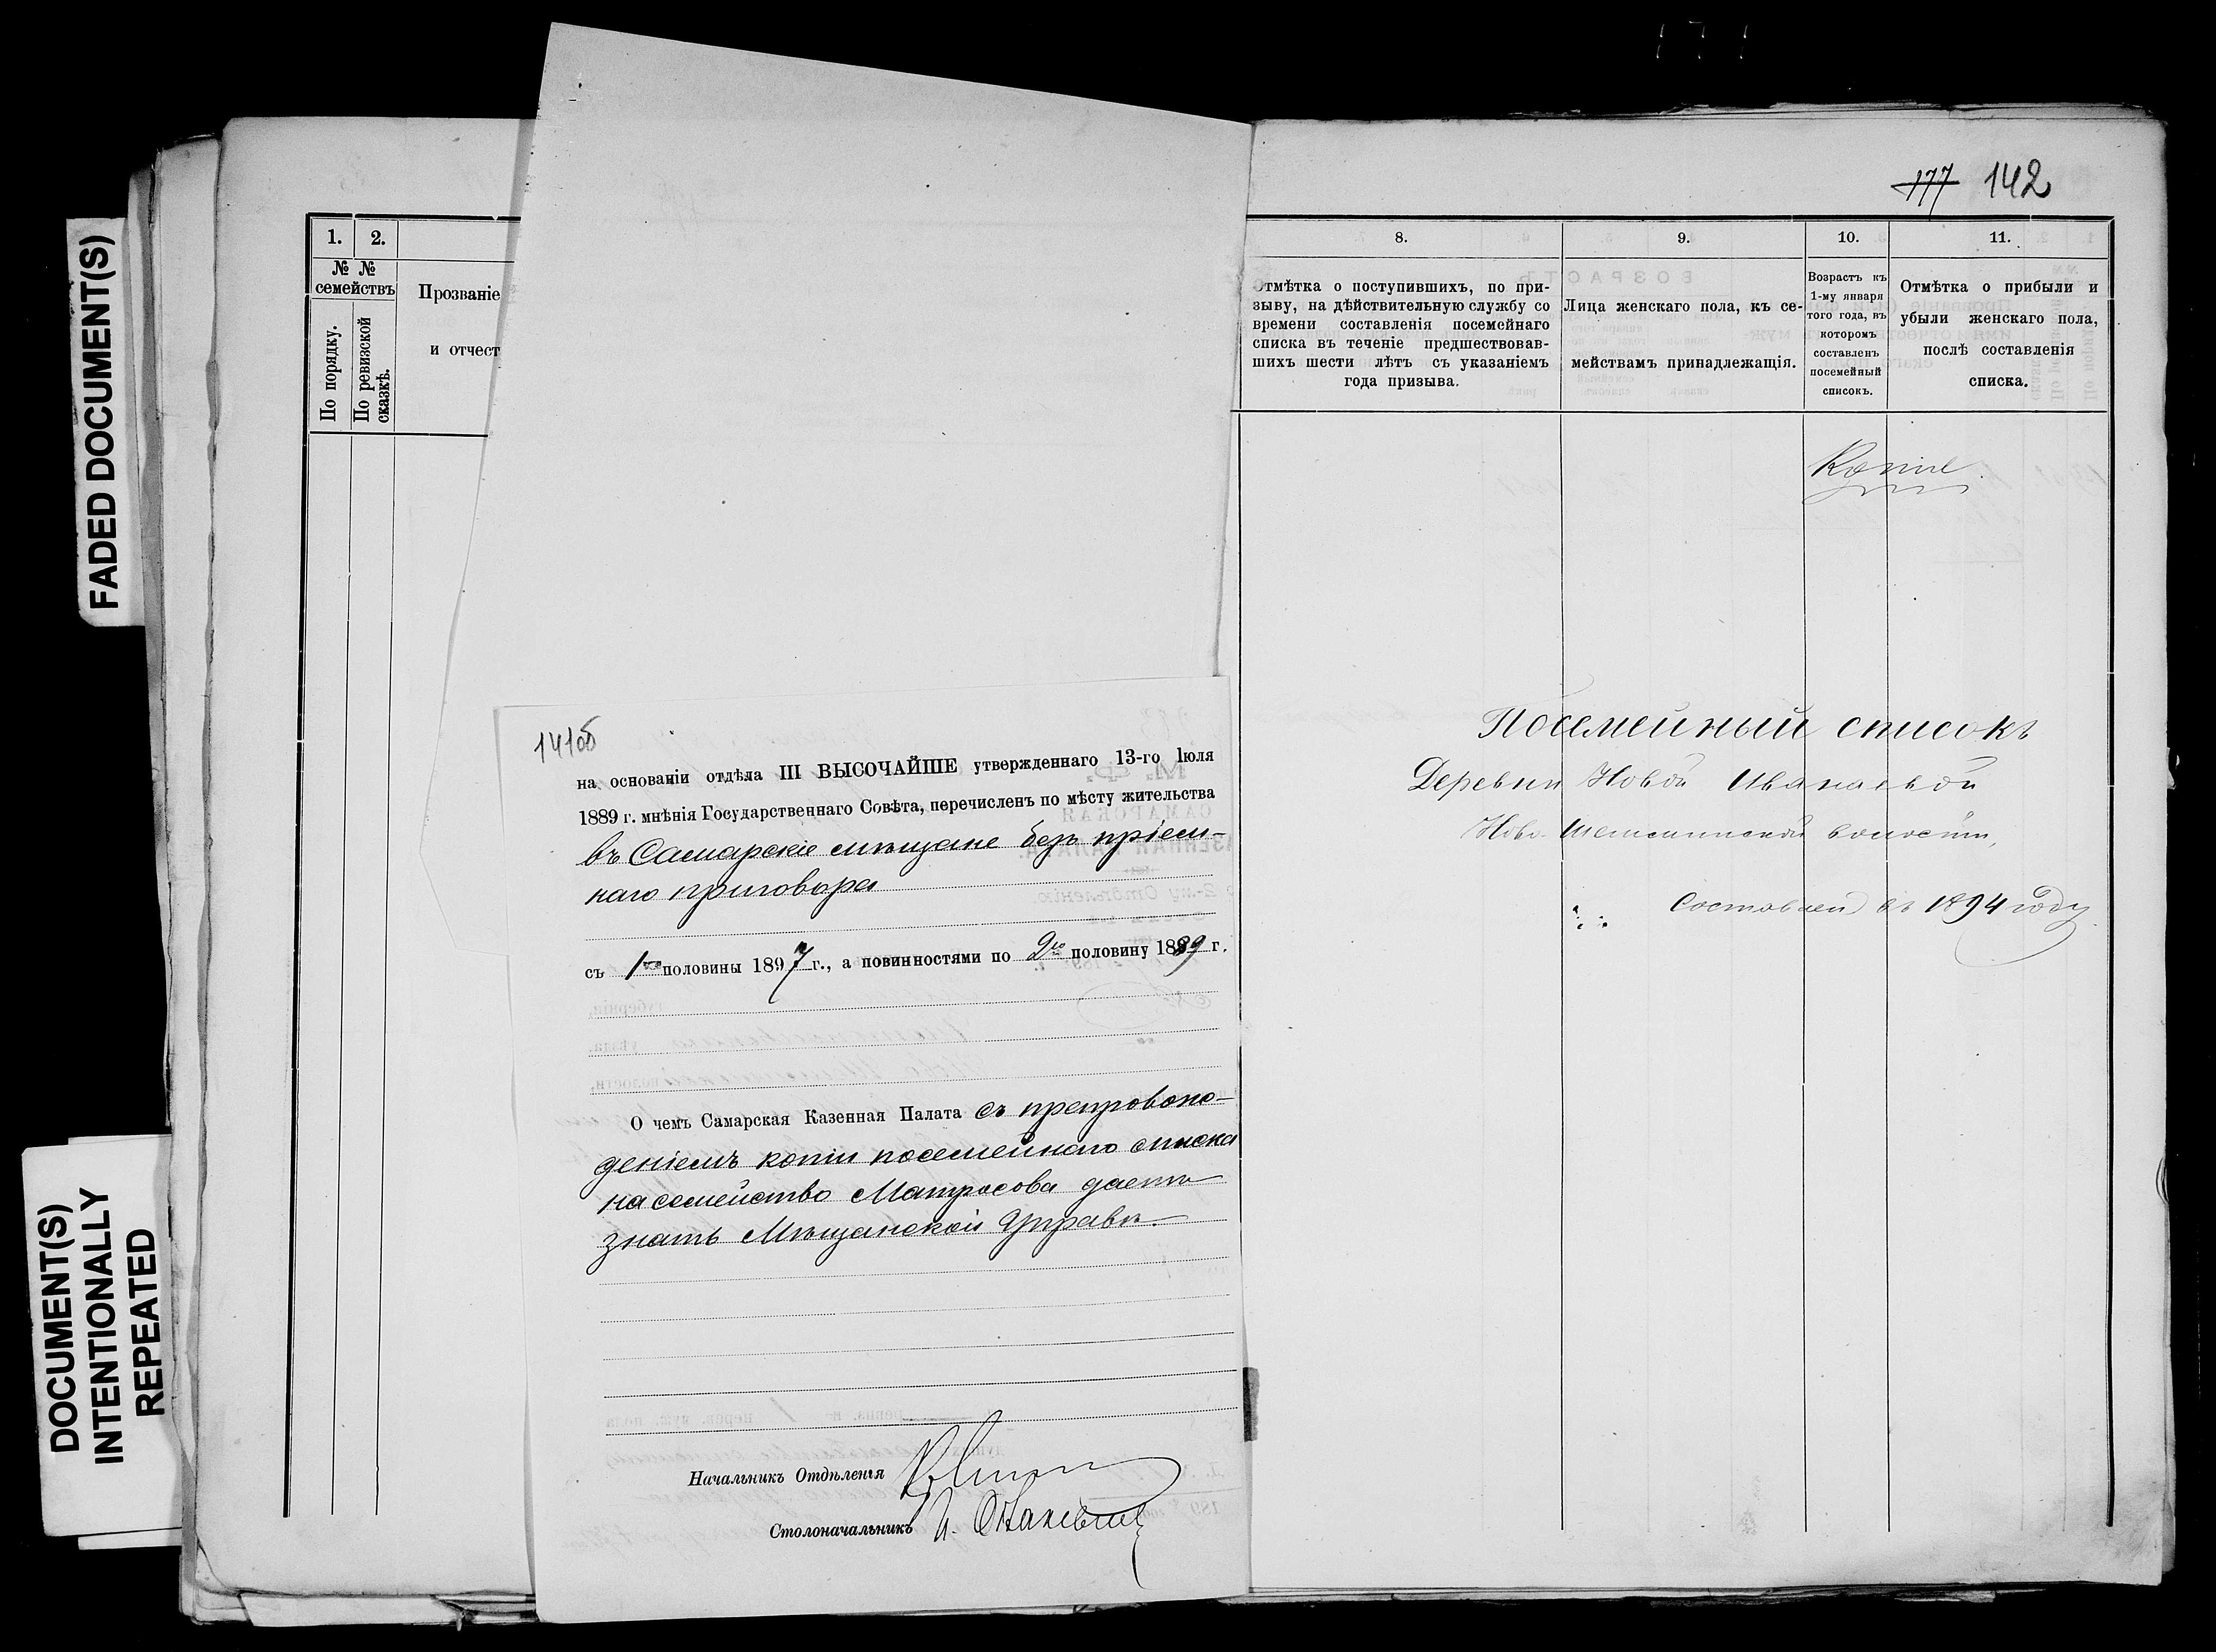 FADED DOCUMENT(S)
DOCUMENT(S)
INTENTIONALLY
REPEATED
1. 2.
№ №
семействъ
По порядку.
По ревизской
сказкѣ.
Прозваніе
и отчест
141об
на основаніи отдѣла III ВЫСОЧАЙШЕ утвержденнаго 13-го Іюля
1889 г. мнѣнія Государственнаго Совѣта, перечисленъ по мѣсту жительства
въ Самарскіе мѣщане безъ пріем-
наго приговора
съ 1ой половины 1897 г., а повинностями по 2ю половину 1899 г.
О чемъ Самарская Казенная Палата съ препровож-
деніемъ копіи посемейнаго списка
на семейство Матросова даетъ
знать Мѣщанской Управѣ.
Начальникъ Отдѣленія
Столоначальникъ
177 142
8. 9. 10. 11.
Отмѣтка о поступившихъ, по при-
зыву, на дѣйствительную службу со
времени составленія посемейнаго
списка въ теченіе предшествовав-
шихъ шести лѣтъ съ указаніемъ
года призыва.
Лица женскаго пола, къ се-
мействамъ принадлежащія.
Возрастъ къ
1-му января
того года, въ
которомъ
составленъ
посемейный
списокъ.
Отмѣтка о прибыли и
убыли женскаго пола,
послѣ составленія
списка.
Копія
Посемейный списокъ
Деревни Новой
Ново-Шешминской волости,
Составлен въ 1894 году